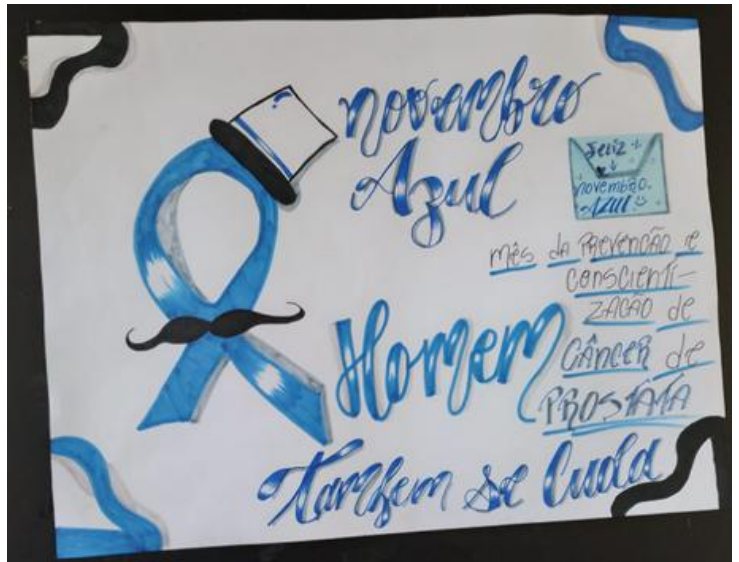 novembro
Azul
Feliz
novembro
AZUL
mês da PREVENÇÃO e
CONSCIENTI-
ZAÇÃO de
CÂNCER de
PROSTATA
Homem
Também se Cuida